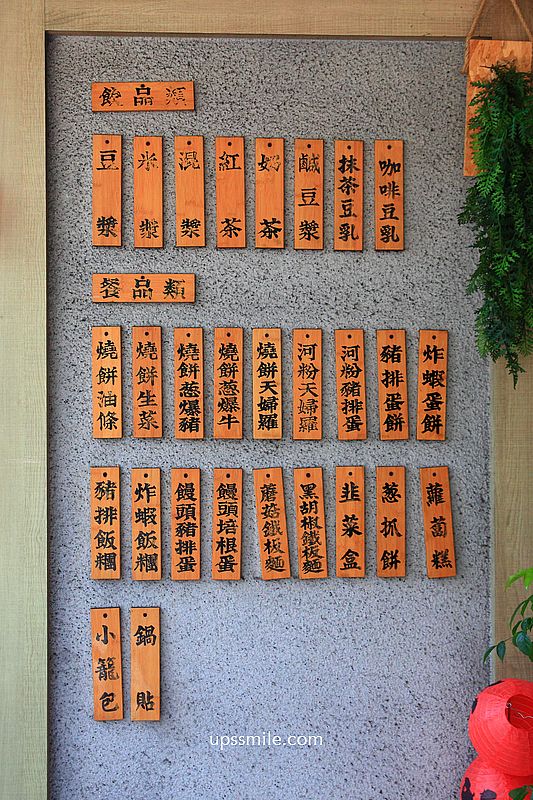 飲品類
豆漿
米漿
混漿
紅茶
奶茶
鹹豆漿
抹茶豆乳
咖啡豆乳
餐品類
燒餅油條
燒餅生菜
燒餅葱爆豬
燒餅葱爆牛
燒餅天婦羅
河粉天婦羅
河粉豬排蛋
豬排蛋餅
炸蝦蛋餅
豬排飯糰
炸蝦飯糰
饅頭豬排蛋
饅頭培根蛋
蘑菇鐵板麵
黑胡椒鐵板麵
韭菜盒
葱抓餅
蘿蔔糕
小籠包
鍋貼
upssmile.com